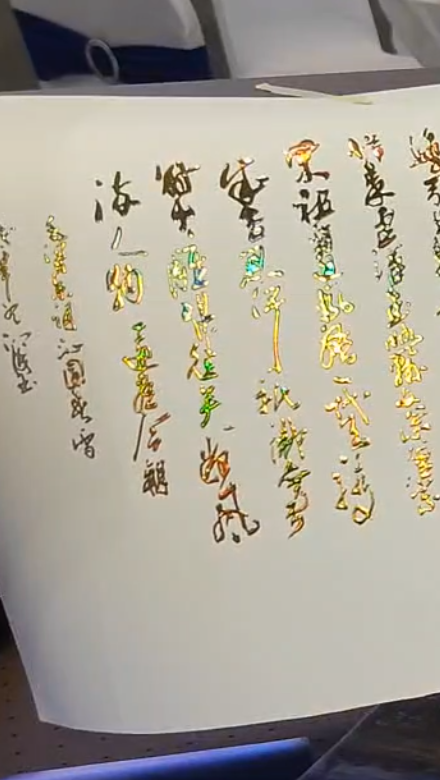 惜秦皇漢武略輸文采唐宗
宋祖稍遜風騷一代天驕
成吉思汗只識彎弓
射大雕俱往矣數風
流人物還看今朝
毛澤東詞沁園春雪